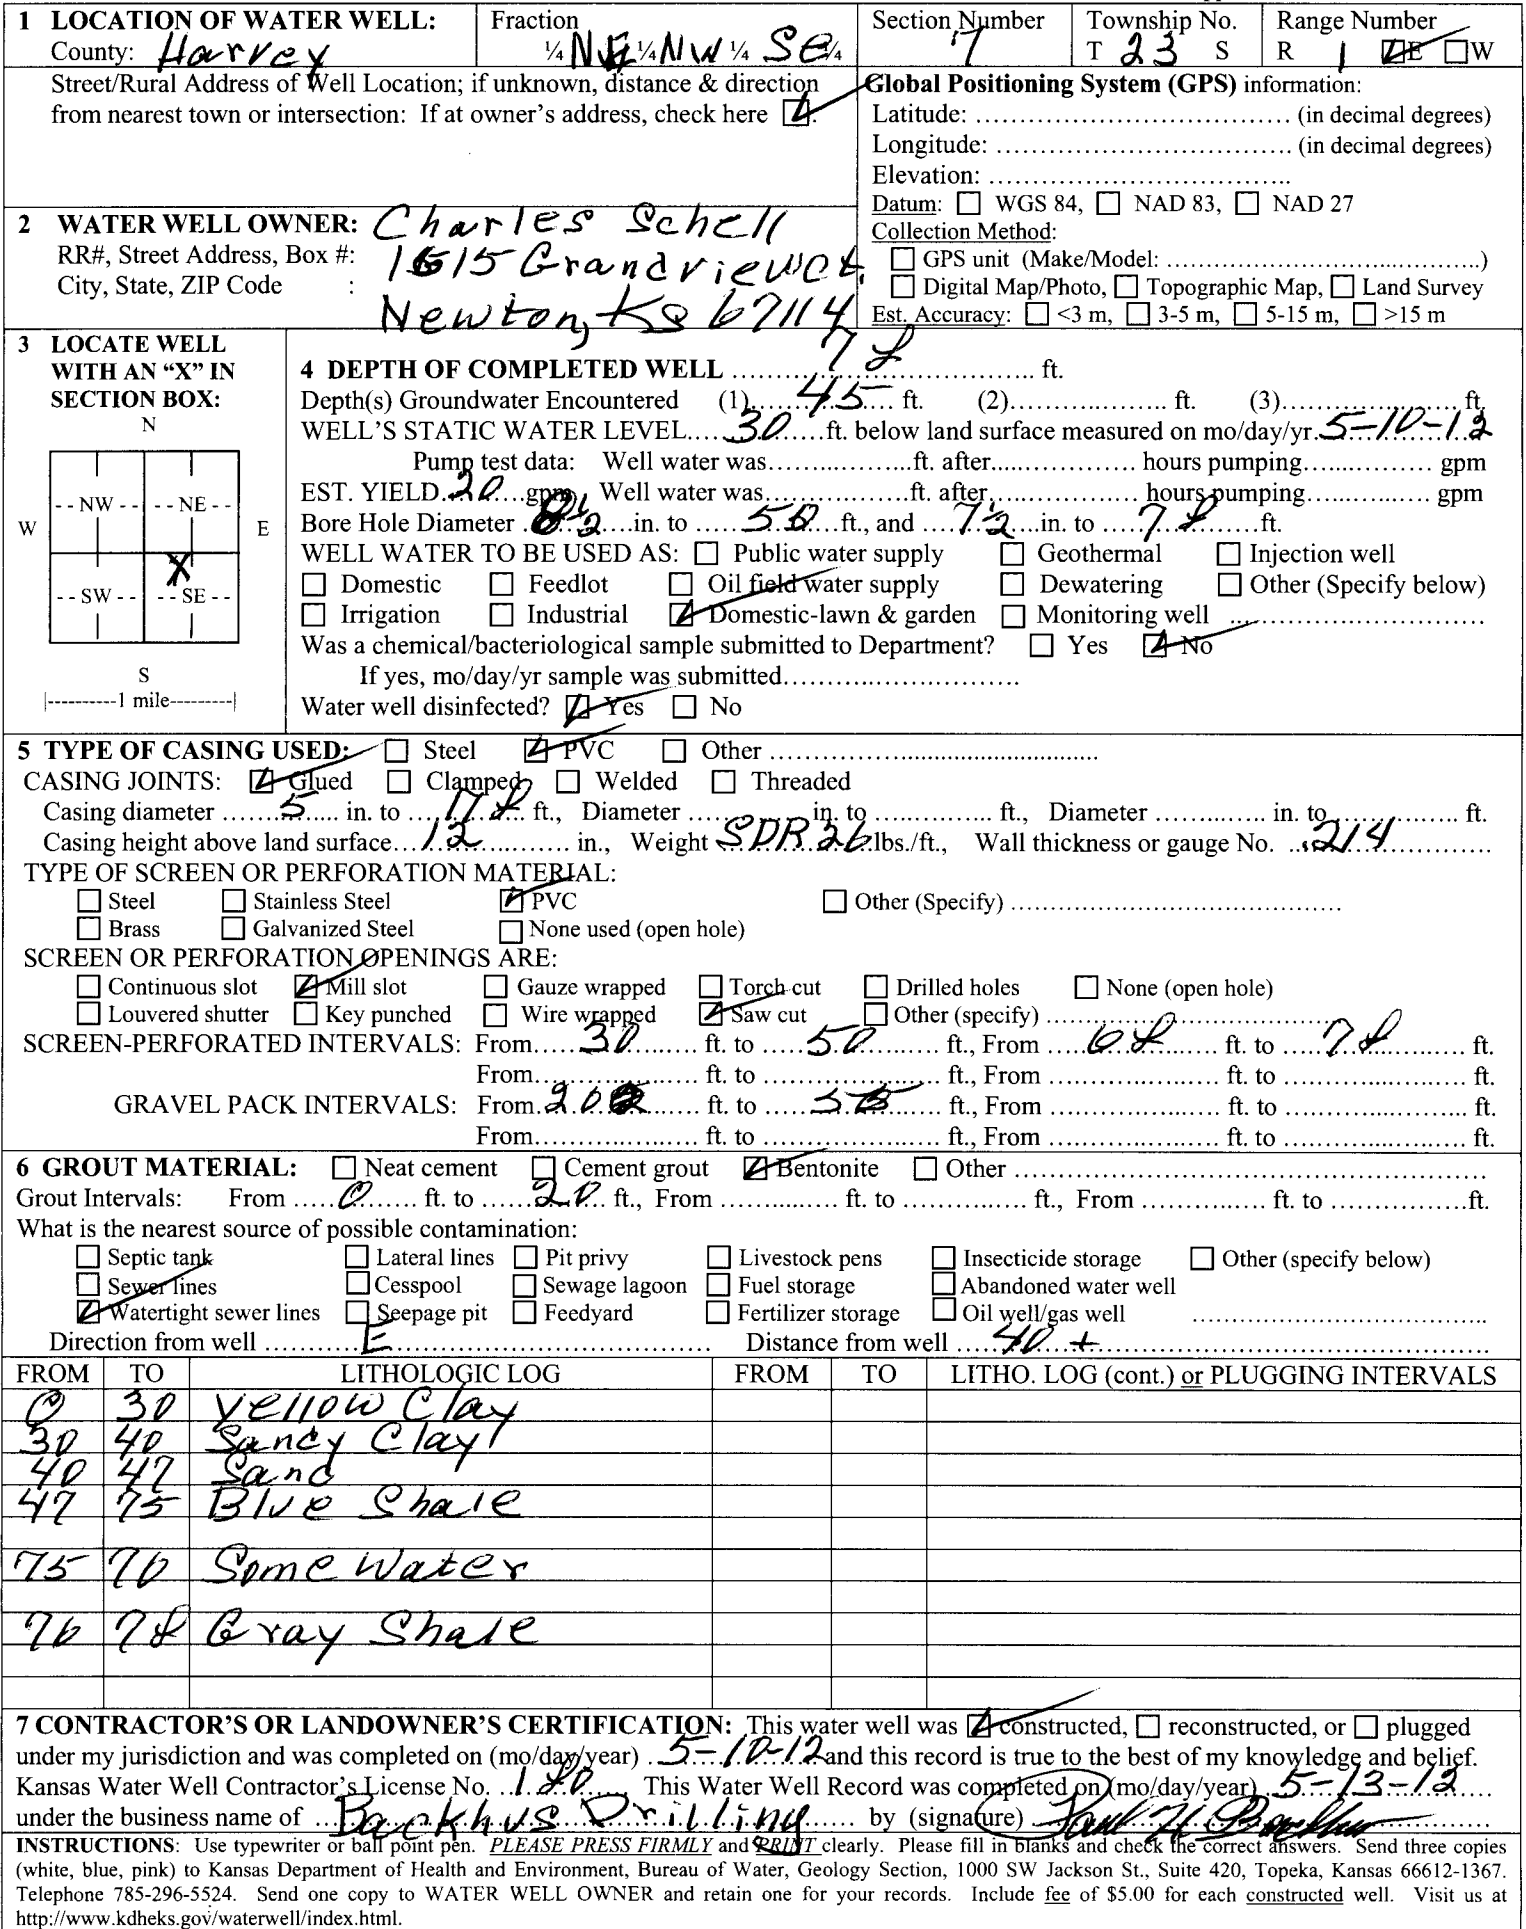 1 LOCATION OF WATER WELL: Fraction Section Number Township No. Range Number
County: Harvey ¼ NE ¼ NW ¼ SE ¼ 7 T 23 S R 1 ☑E ☐W
Street/Rural Address of Well Location; if unknown, distance & direction
from nearest town or intersection: If at owner's address, check here ☑.
Global Positioning System (GPS) information:
Latitude: .................................... (in decimal degrees)
Longitude: .................................... (in decimal degrees)
Elevation: ....................................
Datum: ☐ WGS 84, ☐ NAD 83, ☐ NAD 27
Collection Method:
☐ GPS unit (Make/Model: ....................................)
☐ Digital Map/Photo, ☐ Topographic Map, ☐ Land Survey
Est. Accuracy: ☐ <3 m, ☐ 3-5 m, ☐ 5-15 m, ☐ >15 m
2 WATER WELL OWNER: Charles Schell
RR#, Street Address, Box #: Grandview Ct.
City, State, ZIP Code : Newton, Ks 67114
3 LOCATE WELL
WITH AN "X" IN
SECTION BOX:
N
-- NW -- -- NE --
W E
X
-- SW -- -- SE --
S
|----------1 mile---------|
4 DEPTH OF COMPLETED WELL 78 ft.
Depth(s) Groundwater Encountered (1) 45 ft. (2) ft. (3) ft.
WELL'S STATIC WATER LEVEL 30 ft. below land surface measured on mo/day/yr. 5-10-12
Pump test data: Well water was ft. after hours pumping gpm
EST. YIELD 20 gpm. Well water was ft. after hours pumping gpm
Bore Hole Diameter 8½ in. to 50 ft., and 7½ in. to 78 ft.
WELL WATER TO BE USED AS: ☐ Public water supply ☐ Geothermal ☐ Injection well
☐ Domestic ☐ Feedlot ☐ Oil field water supply ☐ Dewatering ☐ Other (Specify below)
☐ Irrigation ☐ Industrial ☑ Domestic-lawn & garden ☐ Monitoring well
Was a chemical/bacteriological sample submitted to Department? ☐ Yes ☑ No
If yes, mo/day/yr sample was submitted
Water well disinfected? ☑ Yes ☐ No
5 TYPE OF CASING USED: ☐ Steel ☑ PVC ☐ Other
CASING JOINTS: ☑ Glued ☐ Clamped ☐ Welded ☐ Threaded
Casing diameter 5 in. to 78 ft., Diameter in. to ft., Diameter in. to ft.
Casing height above land surface 12 in., Weight SDR 26 lbs./ft., Wall thickness or gauge No. .214
TYPE OF SCREEN OR PERFORATION MATERIAL:
☐ Steel ☐ Stainless Steel ☑ PVC ☐ Other (Specify)
☐ Brass ☐ Galvanized Steel ☐ None used (open hole)
SCREEN OR PERFORATION OPENINGS ARE:
☐ Continuous slot ☑ Mill slot ☐ Gauze wrapped ☐ Torch cut ☐ Drilled holes ☐ None (open hole)
☐ Louvered shutter ☐ Key punched ☐ Wire wrapped ☑ Saw cut ☐ Other (specify)
SCREEN-PERFORATED INTERVALS: From 30 ft. to 50 ft., From 68 ft. to 78 ft.
From ft. to ft., From ft. to ft.
GRAVEL PACK INTERVALS: From 20 ft. to ft., From ft. to ft.
From ft. to ft., From ft. to ft.
6 GROUT MATERIAL: ☐ Neat cement ☐ Cement grout ☑ Bentonite ☐ Other
Grout Intervals: From 0 ft. to 20 ft., From ft. to ft., From ft. to ft.
What is the nearest source of possible contamination:
☐ Septic tank ☐ Lateral lines ☐ Pit privy ☐ Livestock pens ☐ Insecticide storage ☐ Other (specify below)
☐ Sewer lines ☐ Cesspool ☐ Sewage lagoon ☐ Fuel storage ☐ Abandoned water well
☑ Watertight sewer lines ☐ Seepage pit ☐ Feedyard ☐ Fertilizer storage ☐ Oil well/gas well
Direction from well E Distance from well 40 +
FROM TO LITHOLOGIC LOG FROM TO LITHO. LOG (cont.) or PLUGGING INTERVALS
0 30 Yellow Clay
30 40 Sandy Clay
40 47 Sand
47 75 Blue Shale
75 76 Some Water
76 78 Gray Shale
7 CONTRACTOR'S OR LANDOWNER'S CERTIFICATION: This water well was ☑ constructed, ☐ reconstructed, or ☐ plugged
under my jurisdiction and was completed on (mo/day/year) 5-10-12 and this record is true to the best of my knowledge and belief.
Kansas Water Well Contractor's License No. 180 This Water Well Record was completed on (mo/day/year) 5-13-12
under the business name of Backhus Drilling by (signature) Paul H Backhus
INSTRUCTIONS: Use typewriter or ball point pen. PLEASE PRESS FIRMLY and PRINT clearly. Please fill in blanks and check the correct answers. Send three copies
(white, blue, pink) to Kansas Department of Health and Environment, Bureau of Water, Geology Section, 1000 SW Jackson St., Suite 420, Topeka, Kansas 66612-1367.
Telephone 785-296-5524. Send one copy to WATER WELL OWNER and retain one for your records. Include fee of $5.00 for each constructed well. Visit us at
http://www.kdheks.gov/waterwell/index.html.